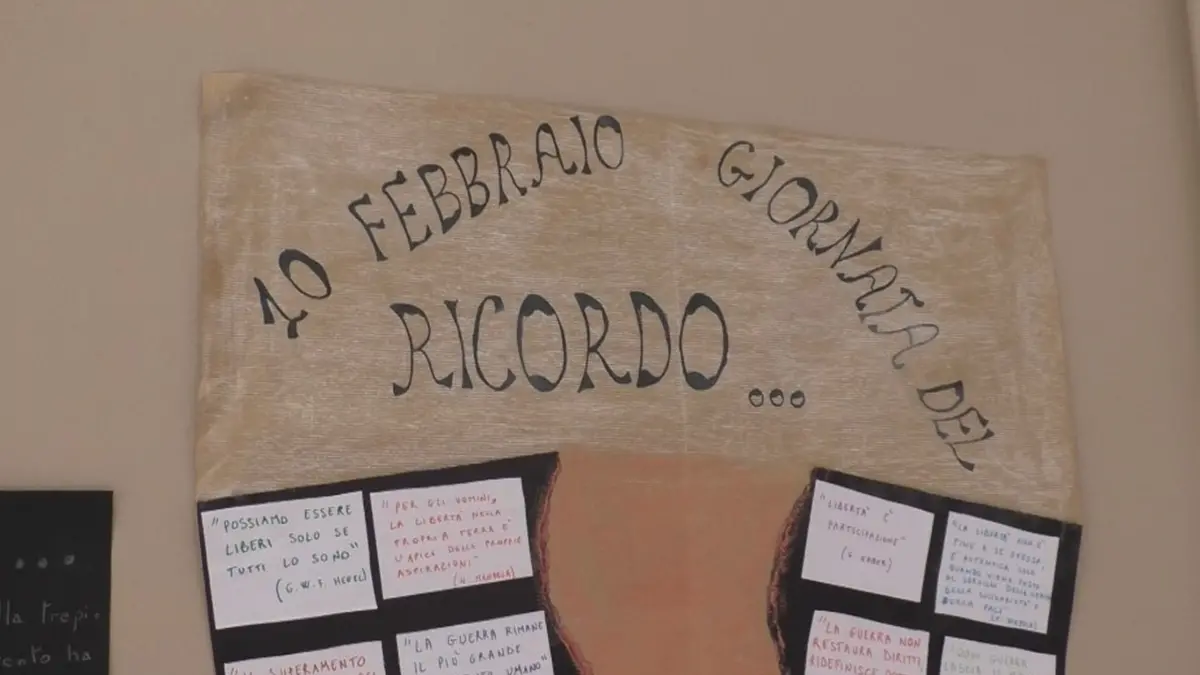 10 FEBBRAIO GIORNATA DEL
RICORDO...
"POSSIAMO ESSERE
LIBERI SOLO SE
TUTTI LO SONO"
(G.W.F. HEGEL)
"PER GLI UOMINI,
LA LIBERTÀ NELLA
PROPRIA TERRA È
L'APICE DELLE PROPRIE
ASPIRAZIONI"
(N. MANDELA)
"LIBERTA' È
PARTECIPAZIONE"
(G. GABER)
"LA LIBERTA' NON È
FINE A SE STESSA.
È AUTENTICA SOLO
QUANDO VIENE POSTA
AL SERVIZIO
DELLA SOLIDARIETÀ E
DELLA PACE"
SUPERAMENTO
"LA GUERRA RIMANE
IL PIÙ GRANDE
UMANO"
"LA GUERRA NON
RESTAURA DIRITTI,
RIDEFINISCE
GUERRA
LASCIA IL
...
lla
ha